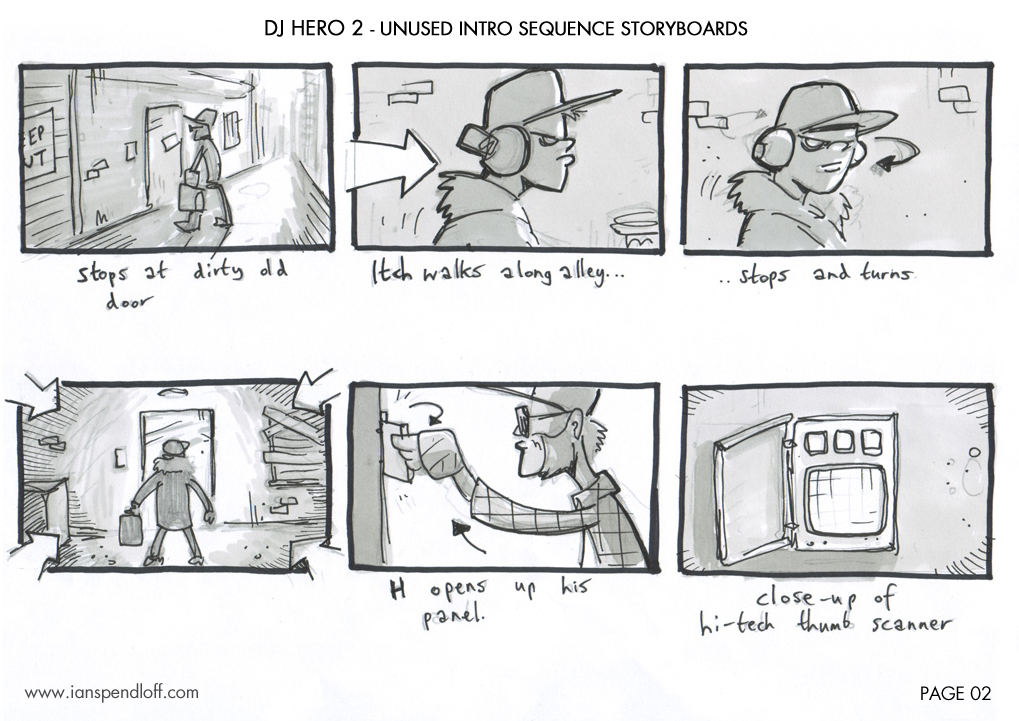 DJ HERO 2 - UNUSED INTRO SEQUENCE STORYBOARDS
EEP
UT
stops at dirty old
door
Itch walks along alley...
.. stops and turns.
H opens up his
panel.
close-up of
hi-tech thumb scanner
www.ianspendloff.com
PAGE 02